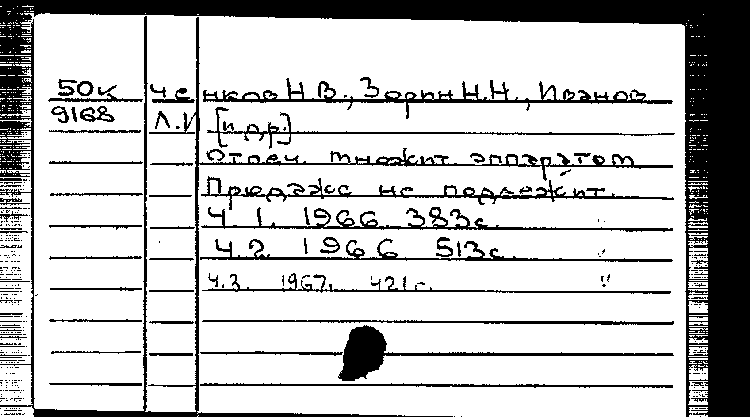 50к Ченков Н.В., Зорин Н.Н., Иванов
9168 Л.И [и др.]
Отпеч. множит. аппаратом
Продаже не подлежит.
Ч. 1. 1966 383с. "
Ч.2. 1966 513с. "
Ч.3. 1967. 421с. "